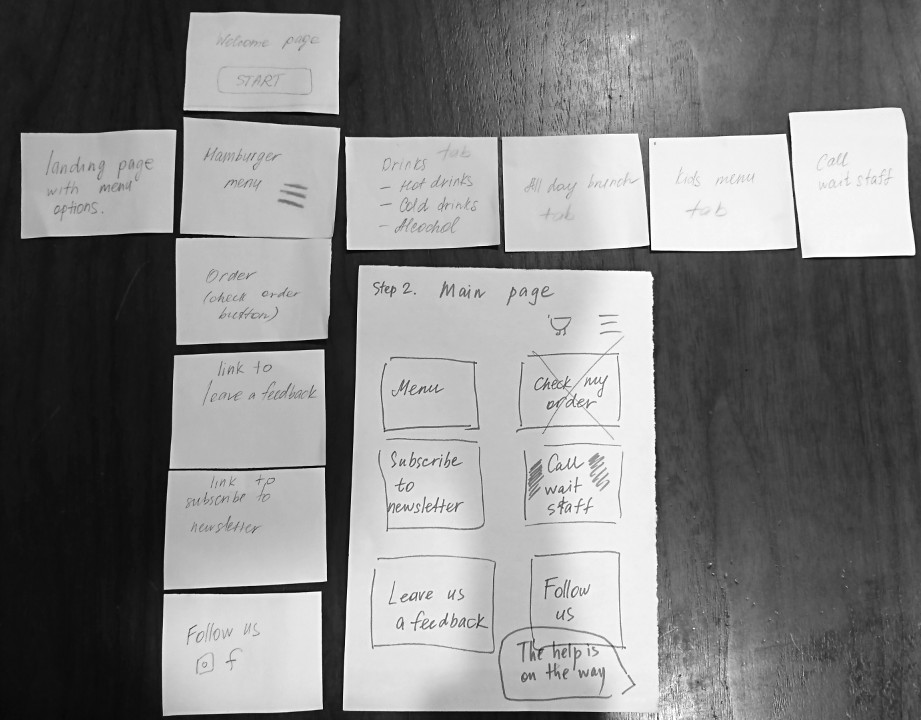 Welcome page
START
landing page
with menu
options.
Hamburger
menu
Drinks tab
- Hot drinks
- Cold drinks
- Alcochol
All day brunch
tab
Kids menu
tab
Call
wait staff
Order
(check order
button)
link to
leave a feedback
link to
subscribe to
newsletter
Follow us
f
Step 2. Main page
Menu
Check my
order
Subscribe
to
newsletter
Call
wait
staff
Leave us
a feedback
Follow
us
The help is
on the way